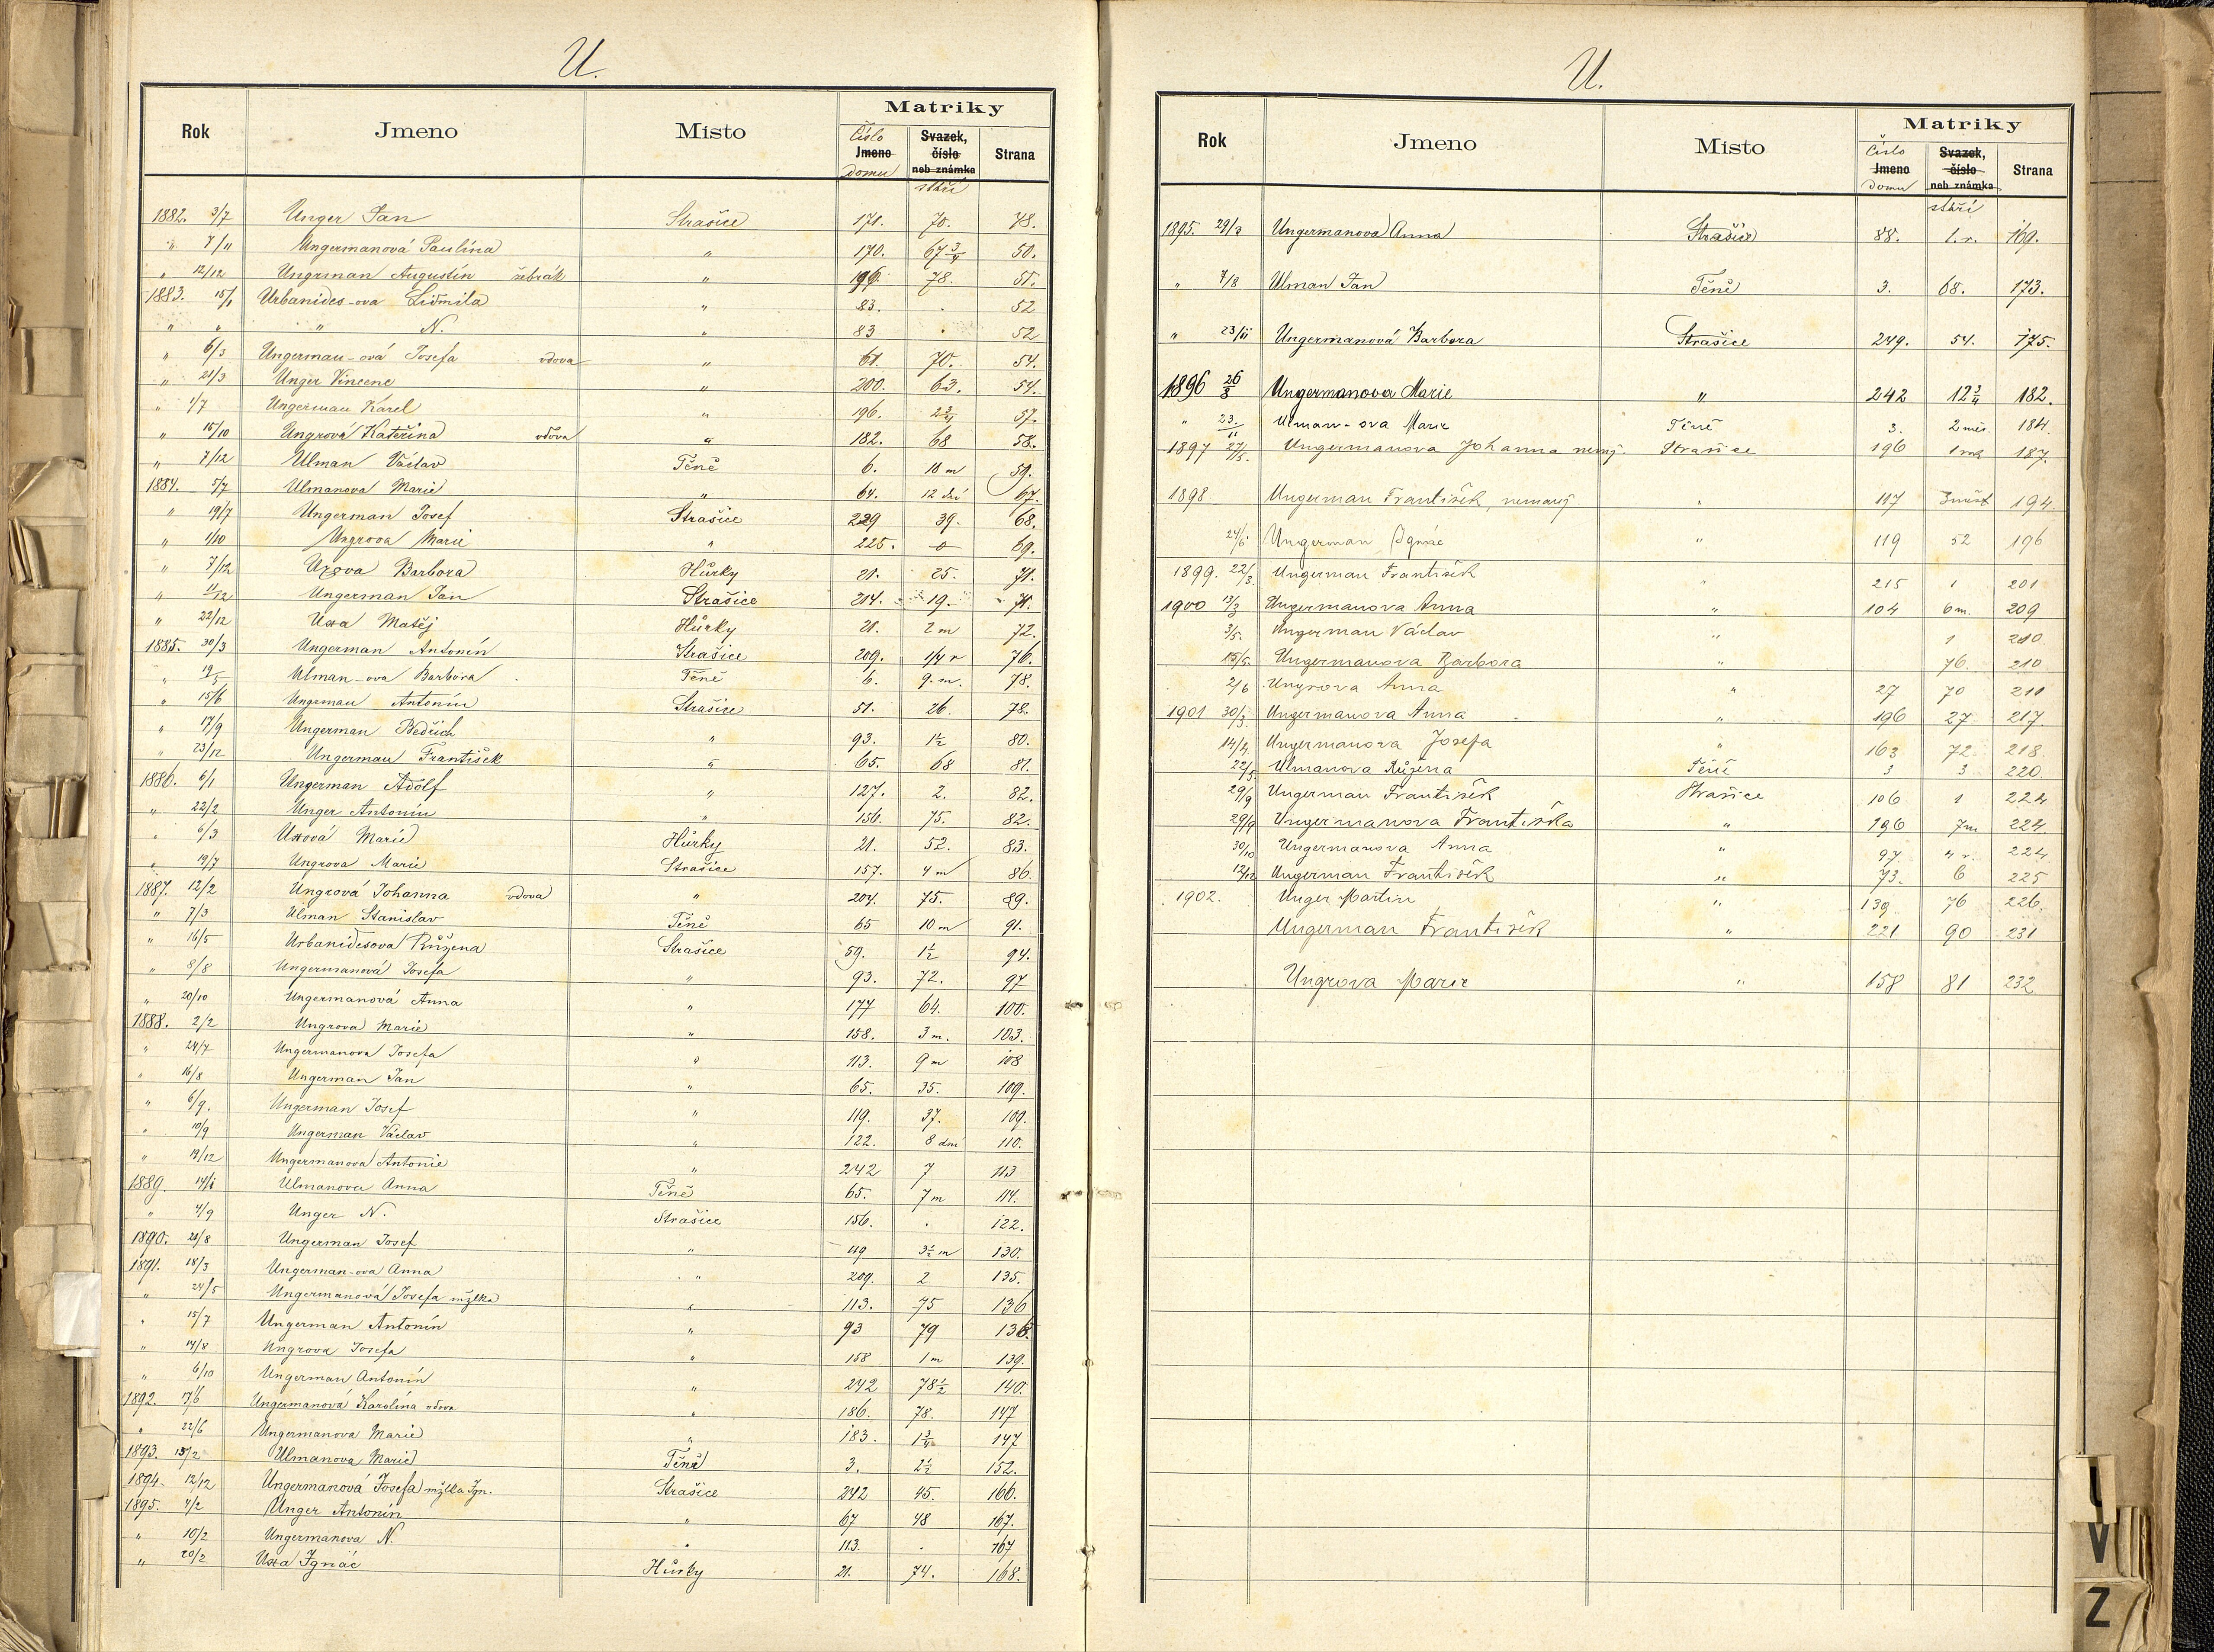 U.
Matriky
Rok Jmeno Místo Číslo Jmeno domu Svazek, číslo neb známka stáří Strana
1882. 3/7 Unger Jan Strašice 171. 70. 48.
" 7/11 Ungermanová Paulína " 170. 67 3/4 50.
" 12/12 Ungrman Augustin žebrák " 196. 78. 51.
1883. 15/1 Urbanides-ova Lidmila " 83. . 52
" " " N. " 83 . 52
" 6/3 Ungerman-ová Josefa vdova " 61. 70. 54.
" 21/3 Unger Vincenc " 200. 63. 54.
" 1/7 Ungerman Karel " 196. 2 3/4 57.
" 15/10 Ungrová Kateřina vdova " 182. 68 58.
" 7/12 Ulman Václav Těně 6. 18 m 59.
1884. 5/7 Ulmanova Marie " 64. 12 dní 67.
" 19/7 Ungerman Josef Strašice 229 39. 68.
" 1/10 Ungrova Marie " 225. 0 69.
" 7/12 Uxova Barbora Hůrky 21. 25. 71.
" 11/12 Ungerman Jan Strašice 214. 19. 71.
" 22/12 Uxa Matěj Hůrky 21. 2 m 72.
1885. 30/3 Ungerman Antonín Strašice 209. 1/4 r 76.
" 19/5 Ulman-ova Barbora Těně 6. 9. m. 78.
" 15/6 Ungerman Antonín Strašice 51. 26. 78.
" 17/9 Ungerman Bedřich " 93. 1 1/2 80.
" 23/12 Ungerman František " 65. 68 81.
1886. 6/1 Ungerman Adolf " 127. 2. 82.
" 22/2 Unger Antonín " 156. 75. 82.
" 6/3 Uxová Marie Hůrky 21. 52. 83.
" 19/7 Ungrova Marie Strašice 157. 4 m 86.
1887. 12/2 Ungrová Johanna vdova " 204. 75. 89.
" 7/3 Ulman Stanislav Těně 65 10 m 91.
" 16/5 Urbanidesova Růžena Strašice 59. 1 1/2 94.
" 8/8 Ungermanová Josefa " 93. 72. 97
" 20/10 Ungermanová Anna " 177 64. 100.
1888. 2/2 Ungrova Marie " 158. 3 m. 103.
" 24/7 Ungermanova Josefa " 113. 9 m 108
" 16/8 Ungerman Jan " 65. 35. 109.
" 6/9. Ungerman Josef " 119. 37. 109.
" 10/9 Ungerman Václav " 122. 8 dní 110.
" 19/12 Ungermanova Antonie " 242 7 113
1889. 14/1 Ulmanova Anna Těně 65. 7 m 114.
" 4/9 Unger N. Strašice 156. . 122.
1890. 21/8 Ungerman Josef " 119 3 1/2 m 130.
1891. 18/3 Ungerman-ova Anna " 209. 2 135.
" 24/5 Ungermanová Josefa mžlka " 113. 75 136
" 15/7 Ungerman Antonín " 93 79 138.
" 14/8 Ungrova Josefa " 158 1 m 139.
" 6/10 Ungerman Antonín " 242 78 1/2 140.
1892. 7/6 Ungermanová Karolína vdova " 186. 78. 147
" 22/6 Ungermanova Marie " 183. 1 3/4 147
1893. 15/2 Ulmanova Marie Těně 3. 2 1/2 152.
1894. 12/12 Ungermanová Josefa mžlka Ign. Strašice 242 45. 166.
1895. 4/2 Unger Antonín " 67 48 167.
" 10/2 Ungermanova N. " 113. . 167
" 20/2 Uxa Ignác Hůrky 21. 74. 168.
U.
Matriky
Rok Jmeno Místo Číslo Jmeno domu Svazek, číslo neb známka stáří Strana
1895. 29/3 Ungermanova Anna Strašice 88. 1. r. 169.
" 7/8 Ulman Jan Těně 3. 68. 173.
" 23/11 Ungermanová Barbora Strašice 249. 54. 175.
1896 26/8 Ungermanova Marie " 242 12 3/4 182.
" 23./11 Ulman-ova Marie Těně 3. 2 měs. 184.
1897 27/5. Ungermanova Johanna nemj. Strašice 196 1 rok 187.
1898 Ungerman František, nemanž " 117 3 měs 194.
24/6 Ungerman Ignác " 119 52 196
1899. 22/3. Ungerman František " 215 1 201
1900 13/3 Ungermanova Anna " 104 6 m. 209
3/5. Ungerman Václav " 1 210.
15/5. Ungermanova Barbora " 76 210
2/6 Ungrova Anna " 27 70 211
1901 30/3. Ungermanova Anna " 196 27 217
14/4. Ungermanova Josefa " 163 72 218
22/5. Ulmanova Růžena Těně 3 3 220
29/9 Ungerman František Strašice 106 1 224
29/9 Ungermanova Františka " 196 7m 224.
30/10 Ungermanova Anna " 97. 4 r. 224
12/12 Ungerman František " 73. 6 225
1902. Unger Martin " 139 76 226.
Ungerman František " 221 90 231
Ungrova Marie " 158 81 232
U
V
Z